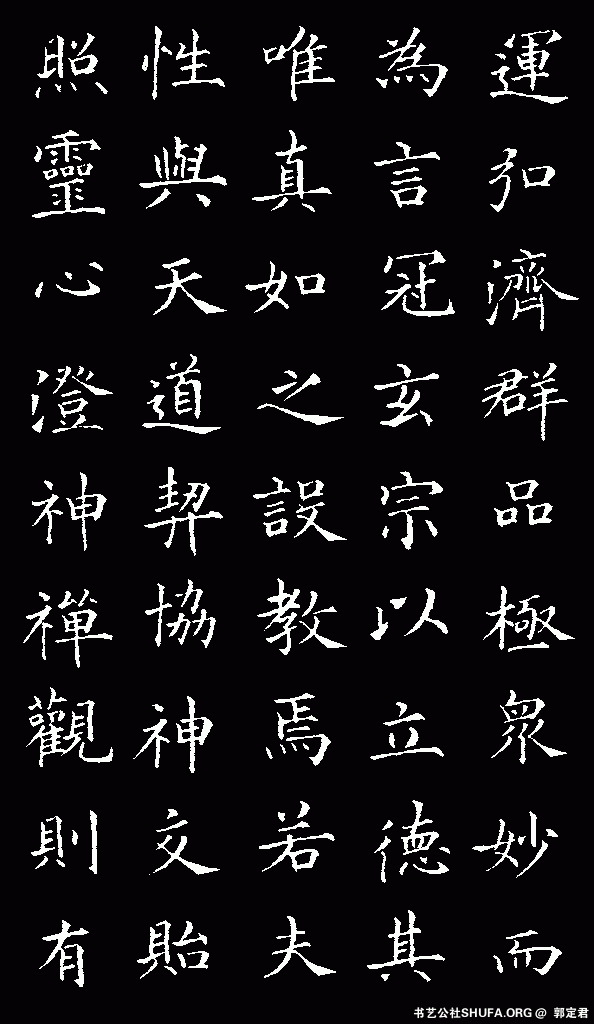 運弘濟群品極衆妙而
為言冠玄宗以立德其
唯真如之設教焉若夫
性與天道契協神交貽
照靈心澄神禪觀則有
书艺公社SHUFA.ORG @ 郭定君